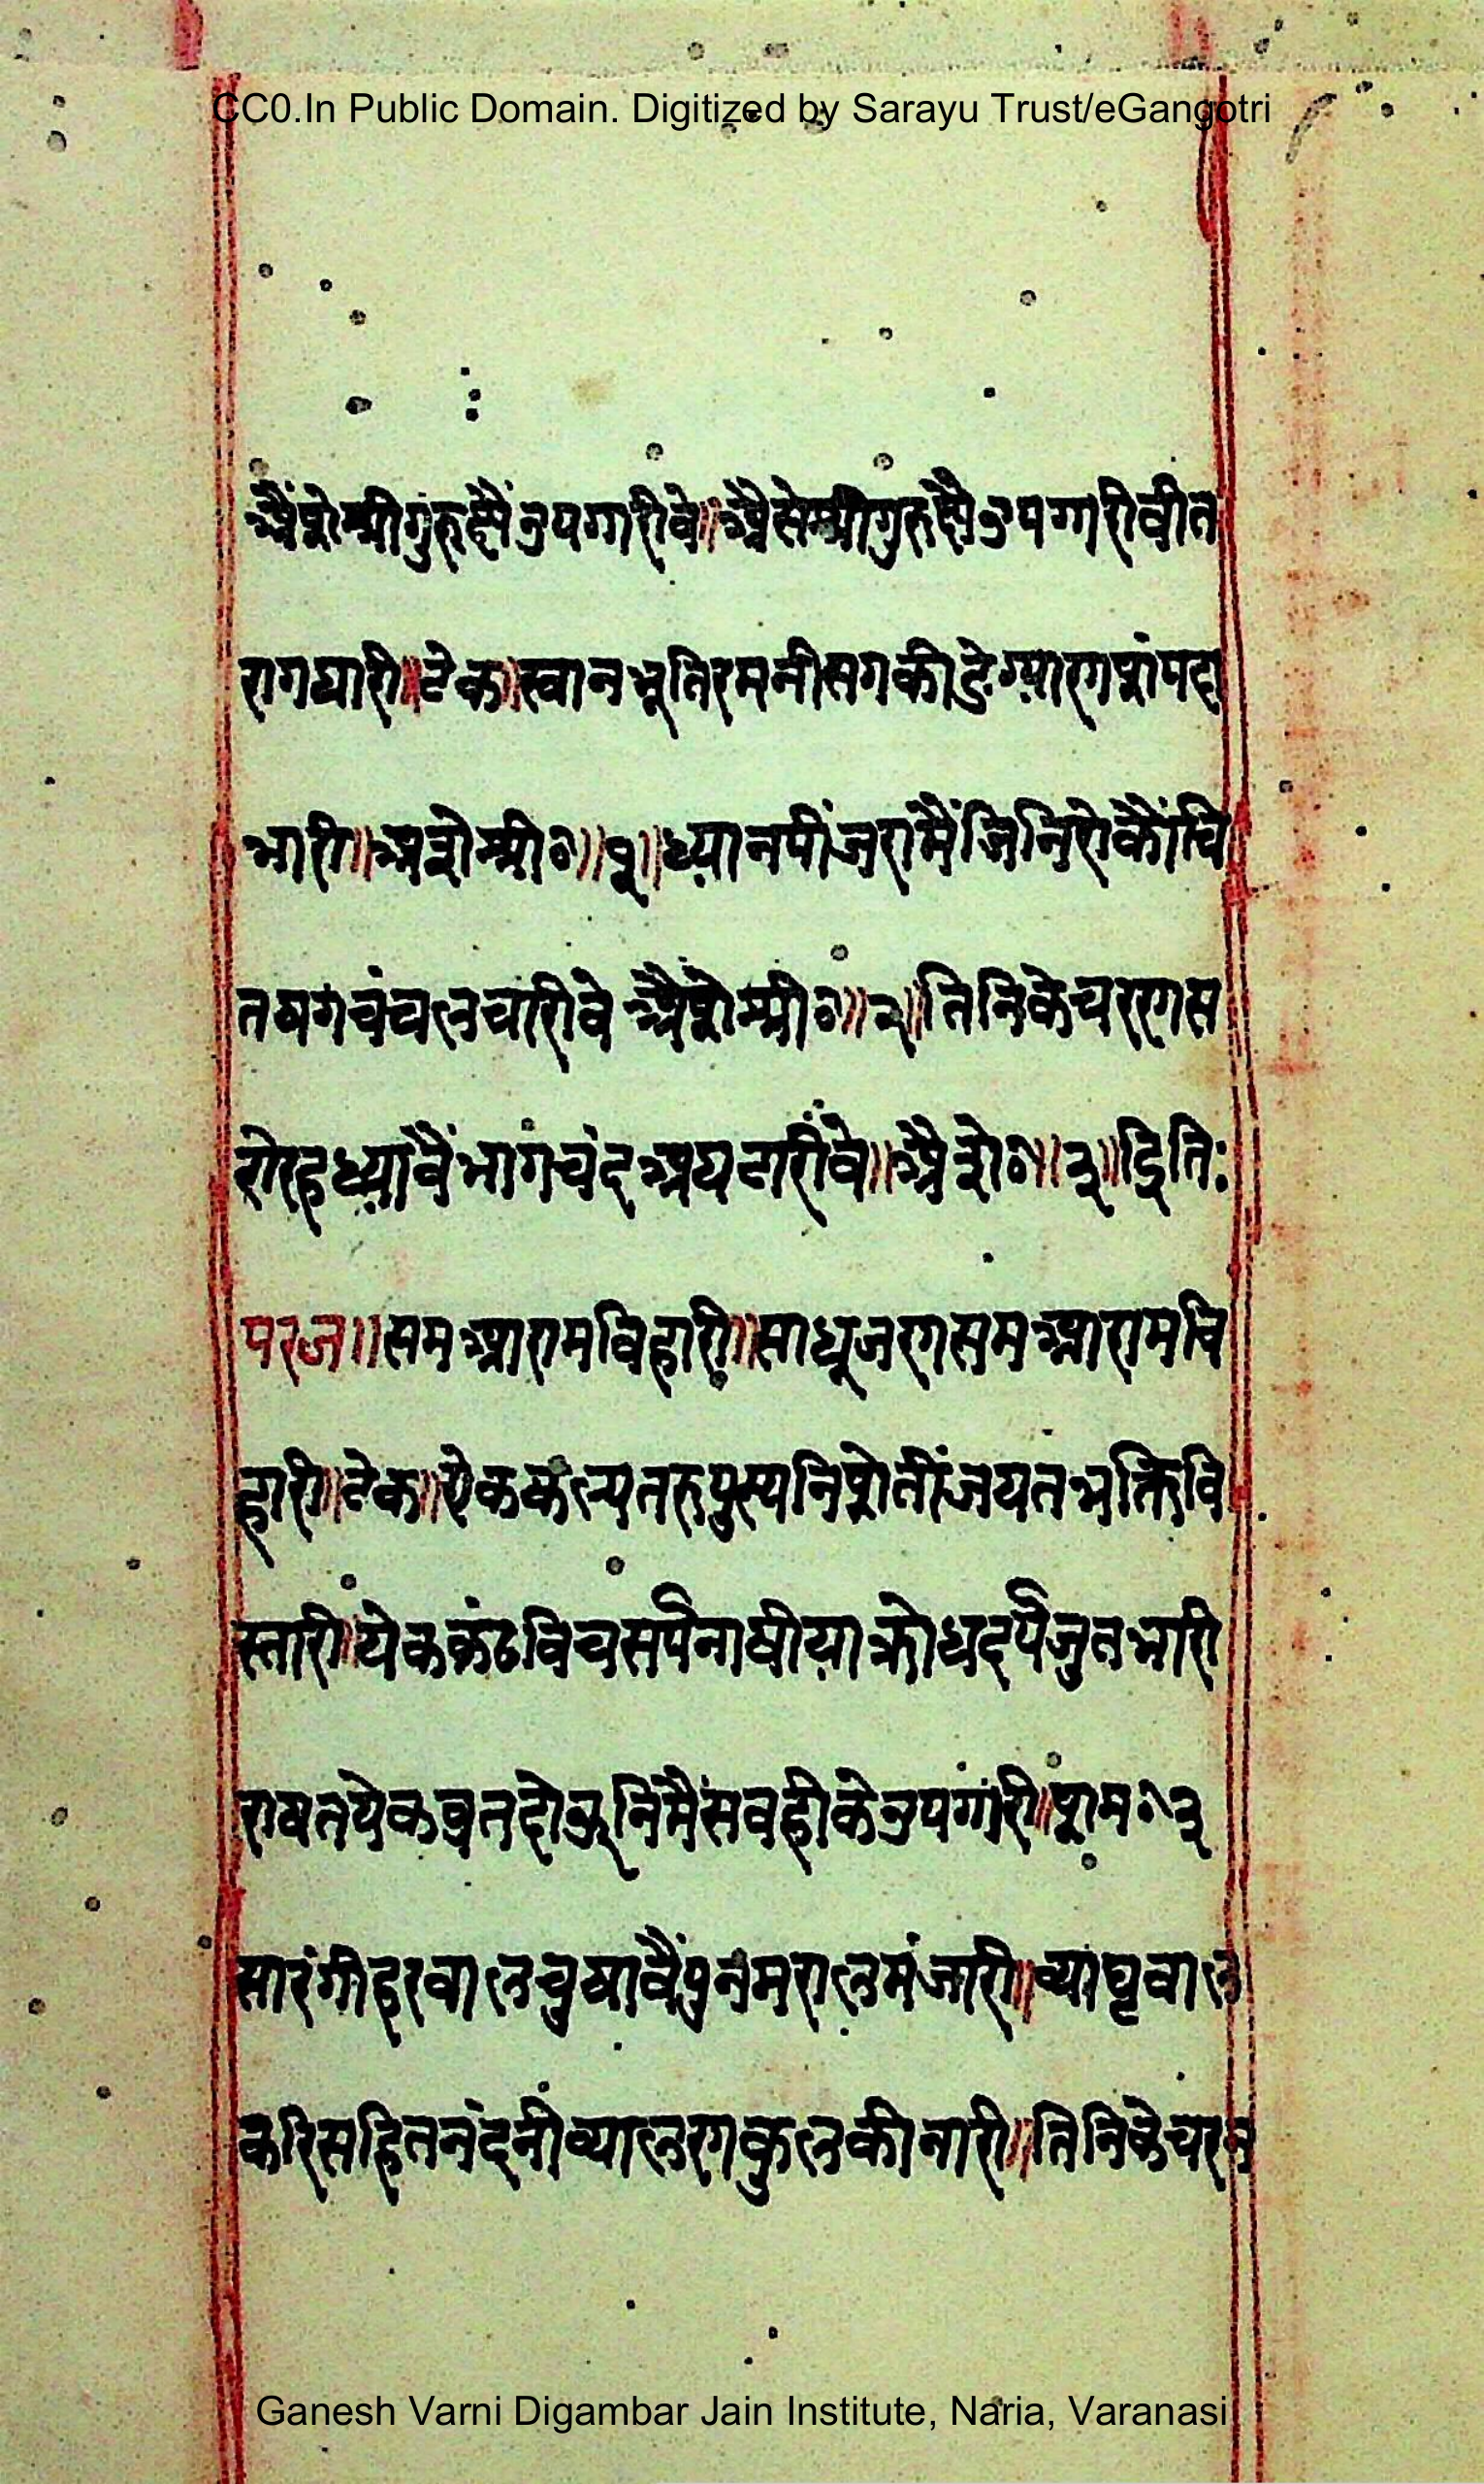 CC0.In Public Domain. Digitized by Sarayu Trust/eGangotri
श्रीगुरु उपगारीवे॥ अैसेश्रीगुरु उपगारीवीत
रागधारी॥टेक॥स्वानभूतिरमनीसग
भारी॥ श्री०॥१॥ध्यानपींजरामैंजिनिरोकौंचि
तषगचंचलचारीवे श्री०॥२॥तिनिकेचररगस
रोरहध्यावैंभागचंदअघटारीवे॥ ३॥ इति:
परज॥समआरामविहारी॥साधूजरगसमआरामवि
हारी॥टेक॥येककल्पतरुपुस्पनि जयतभक्तिवि
स्तारी॥येककंठविचसर्पनाषीयाक्रोधदर्पजुतभारी
राषतयेकव्रतदोऊनिमैंसवहीकेउपगारी॥
सारंगीहरवालचुषावैंपुनमरालमंजारी॥व्याघ्रवाल
करिसहितनंदनीव्यालरगकुलकीनारी॥तिनिकेचरन
Ganesh Varni Digambar Jain Institute, Naria, Varanasi